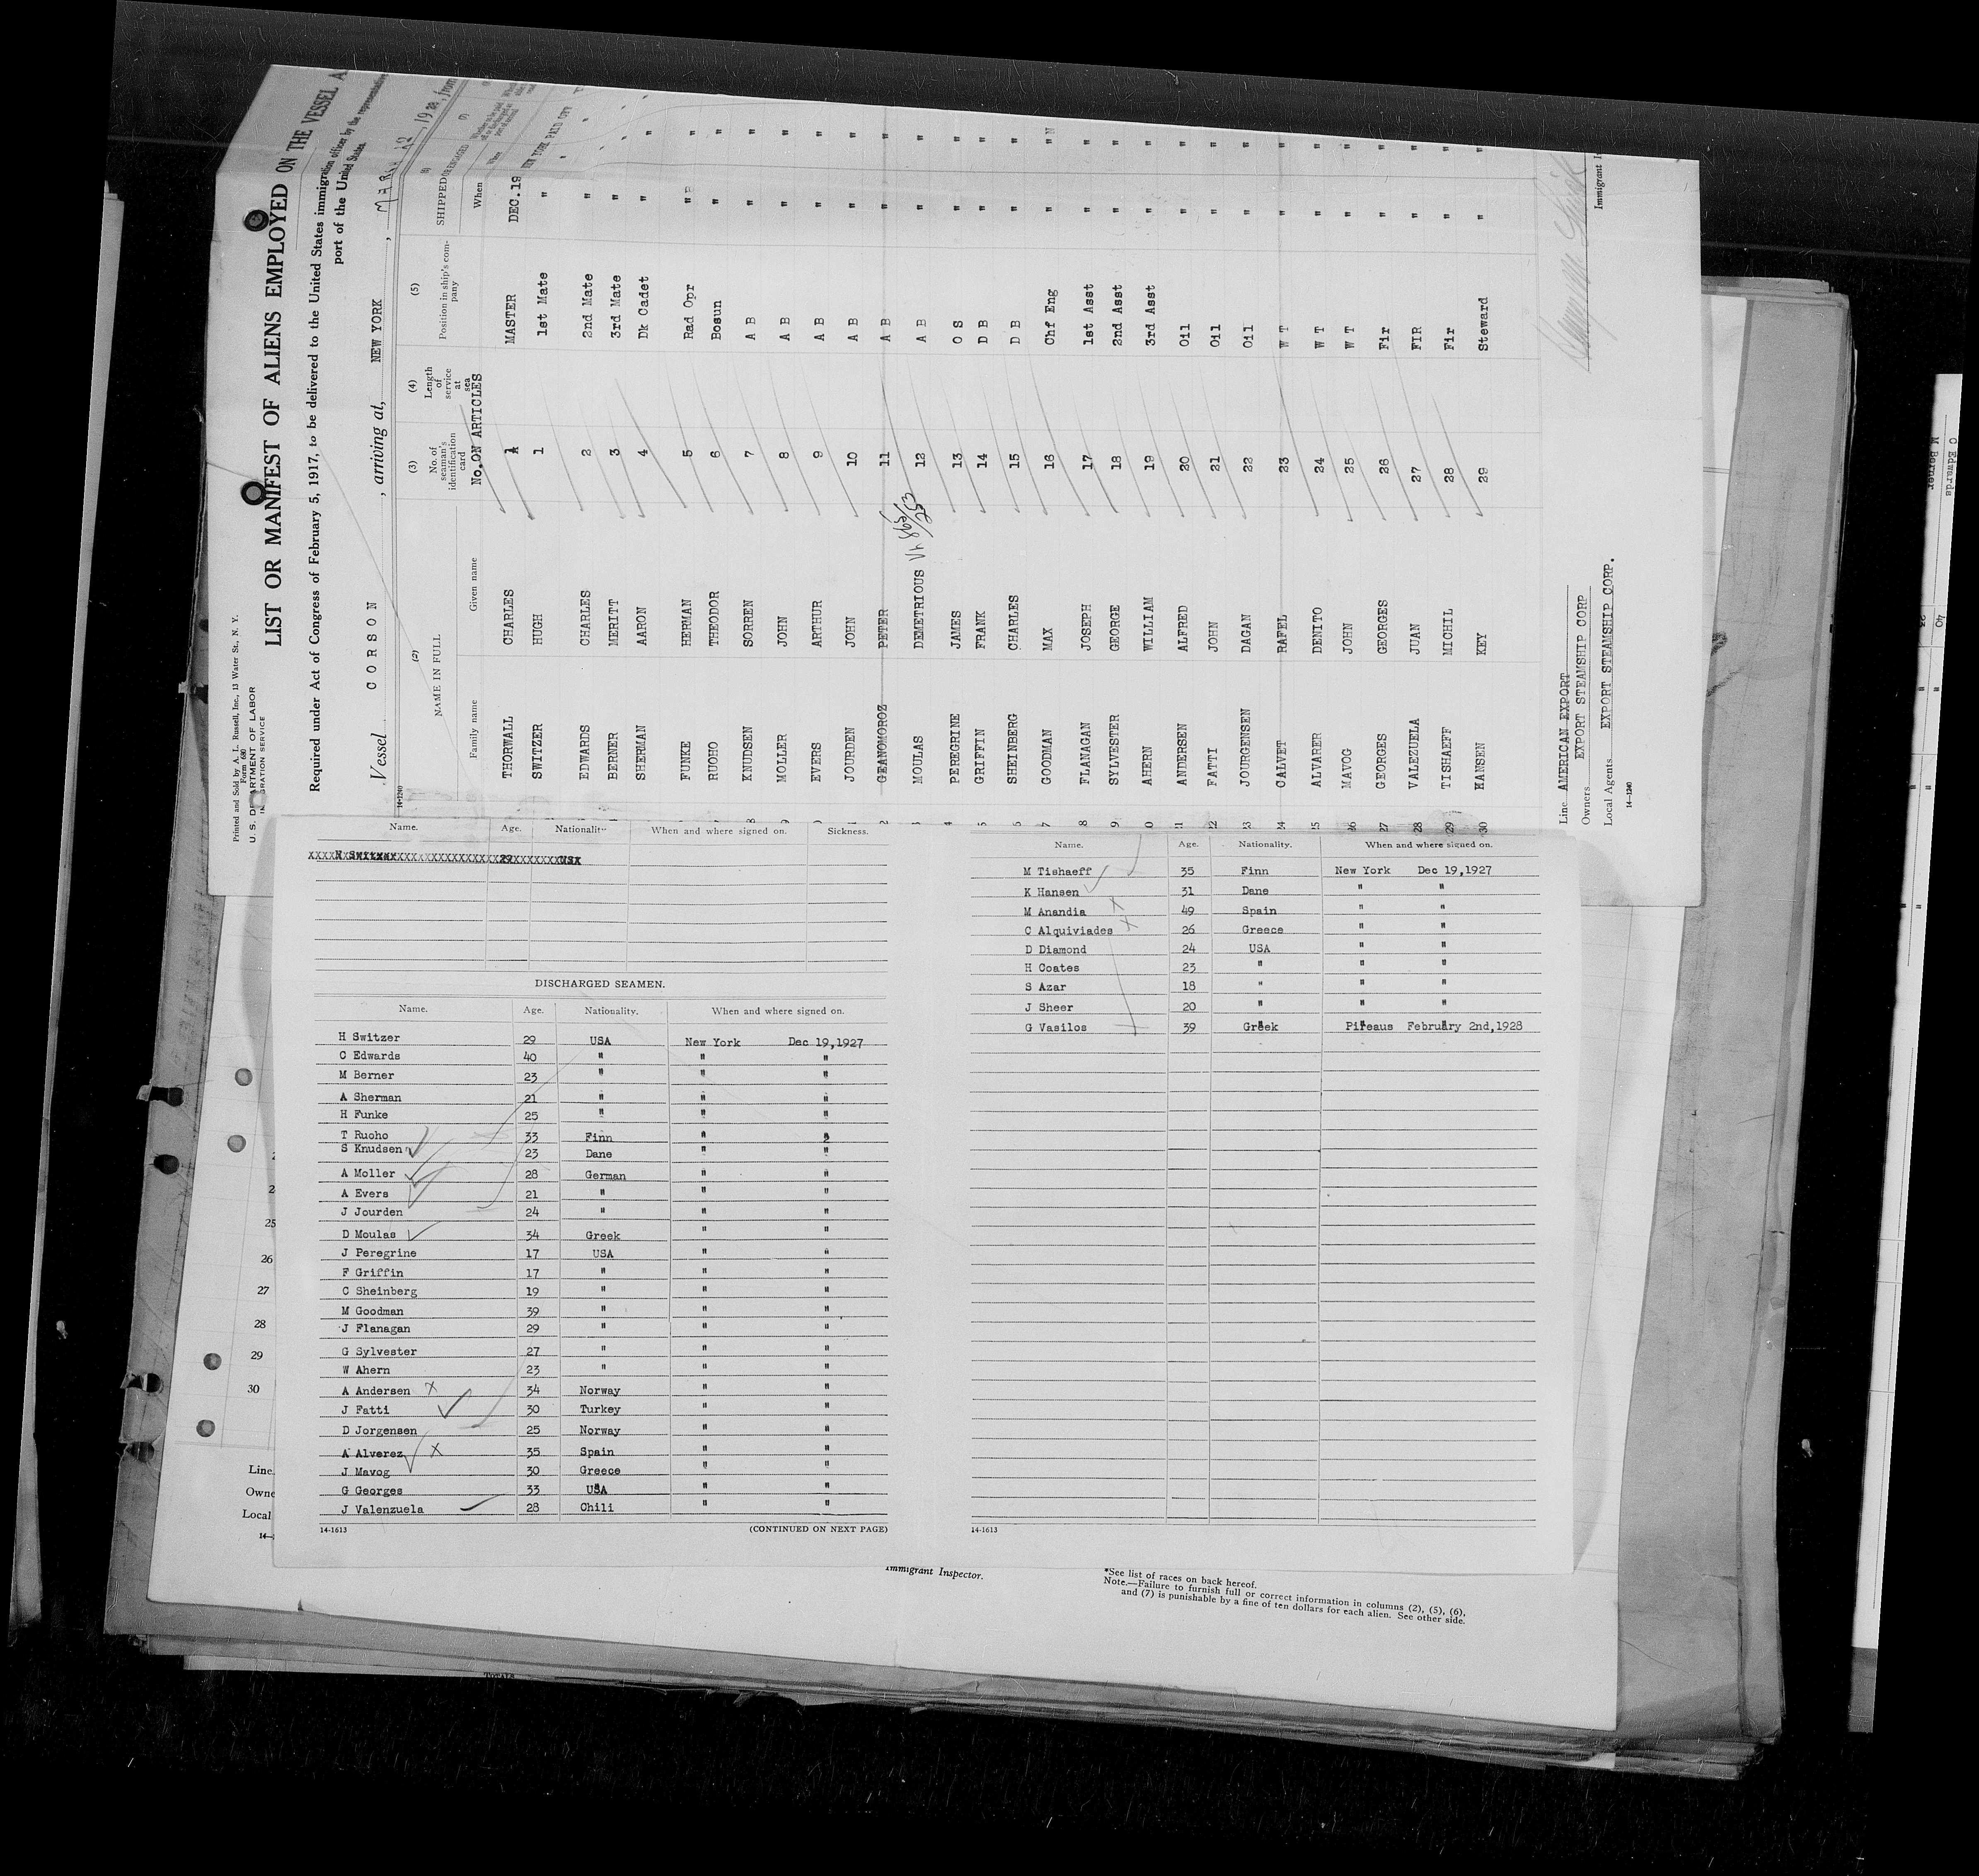 Printed and Sold by A. L. Russell, Inc., 13 Water St. N. Y.
Form 680
U. S. DEPARTMENT OF LABOR
IMMIGRATION SERVICE
LIST OR MANIFEST OF ALIENS EMPLOYED ON THE VESSEL A
Required under Act of Congress of February 5, 1917, to be delivered to the United States immigration officer by the representative
port of the United States.
Vessel CORSON , arriving at, NEW YORK , MARCH 12, 19 28, from
14-1240
(2) (3) (4) (5) (6) (7)
NAME IN FULL No. of seaman's identification card Length of service at sea Position in ship's company SHIPPED OR ENGAGED
Family name Given name No.ON ARTICLES When Where
THORWALL CHARLES 1 MASTER DEC.19 NEW YORK PAID OFF
SWITZER HUGH 1 1st Mate " "
EDWARDS CHARLES 2 2nd Mate " "
BERNER MERITT 3 3rd Mate " "
SHERMAN AARON 4 Dk Cadet " "
FUNKE HERMAN 5 Rad Opr " "
RUOHO THEODOR 6 Bosun " "
8 KNUDSEN SORREN 7 A B " "
9 MOLLER JOHN 8 A B " "
EVERS ARTHUR 9 A B " "
JOURDEN JOHN 10 A B " "
2 GEANOMOROZ PETER 11 A B " "
MOULAS DEMETRIOUS 12 A B " "
4 PEREGRINE JAMES 13 O S " "
5 GRIFFIN FRANK 14 D B " "
6 SHEINBERG CHARLES 15 D B " "
7 GOODMAN MAX 16 Chf Eng " "
8 FLANAGAN JOSEPH 17 1st Asst " "
9 SYLVESTER GEORGE 18 2nd Asst " "
0 AHERN WILLIAM 19 3rd Asst " "
21 ANDERSEN ALFRED 20 Oil " "
22 FATTI JOHN 21 Oil " "
23 JOURGENSEN DAGAN 22 Oil " "
24 CALVET RAFEL 23 W T " "
25 ALVARER DENITO 24 W T " "
26 MAVOG JOHN 25 W T " "
27 GEORGES GEORGES 26 Fir " "
28 VALEZUELA JUAN 27 FIR " "
29 TISHAEFF MICHIL 28 Fir " "
30 HANSEN KEY 29 Steward " "
Line AMERICAN EXPORT
Owners EXPORT STEAMSHIP CORP
Local Agents EXPORT STEAMSHIP CORP.
14-1240
Immigrant I
Name. Age. Nationality When and where signed on. Sickness.
H Switzer 29 USA
DISCHARGED SEAMEN.
Name. Age. Nationality. When and where signed on.
H Switzer 29 USA New York Dec 19,1927
C Edwards 40 " " "
M Berner 23 " " "
A Sherman 21 " " "
H Funke 25 " " "
T Ruoho 33 Finn " "
S Knudsen 23 Dane " "
A Moller 28 German " "
A Evers 21 " " "
J Jourden 24 " " "
D Moulas 34 Greek " "
J Peregrine 17 USA " "
F Griffin 17 " " "
C Sheinberg 19 " " "
M Goodman 39 " " "
J Flanagan 29 " " "
G Sylvester 27 " " "
W Ahern 23 " " "
A Andersen 34 Norway " "
J Fatti 30 Turkey " "
D Jorgensen 25 Norway " "
A Alverez 35 Spain " "
J Mavog 30 Greece " "
G Georges 33 USA " "
J Valenzuela 28 Chili " "
14-1613 (CONTINUED ON NEXT PAGE)
Name. Age. Nationality. When and where signed on.
M Tishaeff 35 Finn New York Dec 19,1927
K Hansen 31 Dane " "
M Anandia 49 Spain " "
C Alquiviades 26 Greece " "
D Diamond 24 USA " "
H Coates 23 " " "
S Azar 18 " " "
J Sheer 20 " " "
G Vasilos 39 Greek Pireaus February 2nd,1928
14-1613
25
26
27
28
29
30
Line
Owne
Local
14-
Immigrant Inspector.
*See list of races on back hereof.
Note.—Failure to furnish full or correct information in columns (2), (5), (6),
and (7) is punishable by a fine of ten dollars for each alien. See other side.
TOTALS
C Edwards 40
M Berner 23